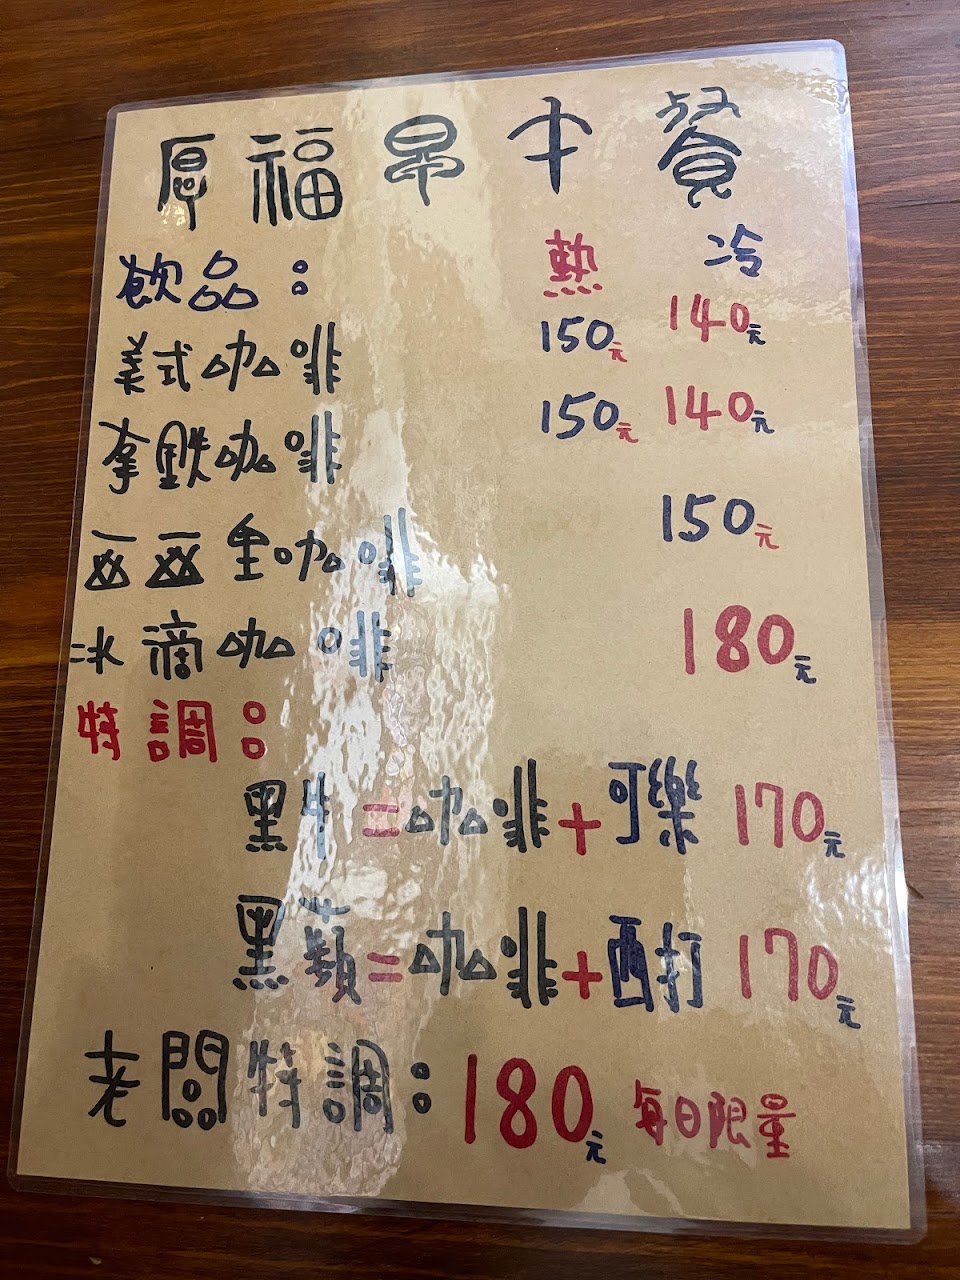 厚福早午餐
飲品： 熱 冷
美式咖啡 150元 140元
拿鐵咖啡 150元 140元
西西里咖啡 150元
冰滴咖啡 180元
特調：
黑牛=咖啡+可樂 170元
黑蘋=咖啡+西打 170元
老闆特調：180元 每日限量